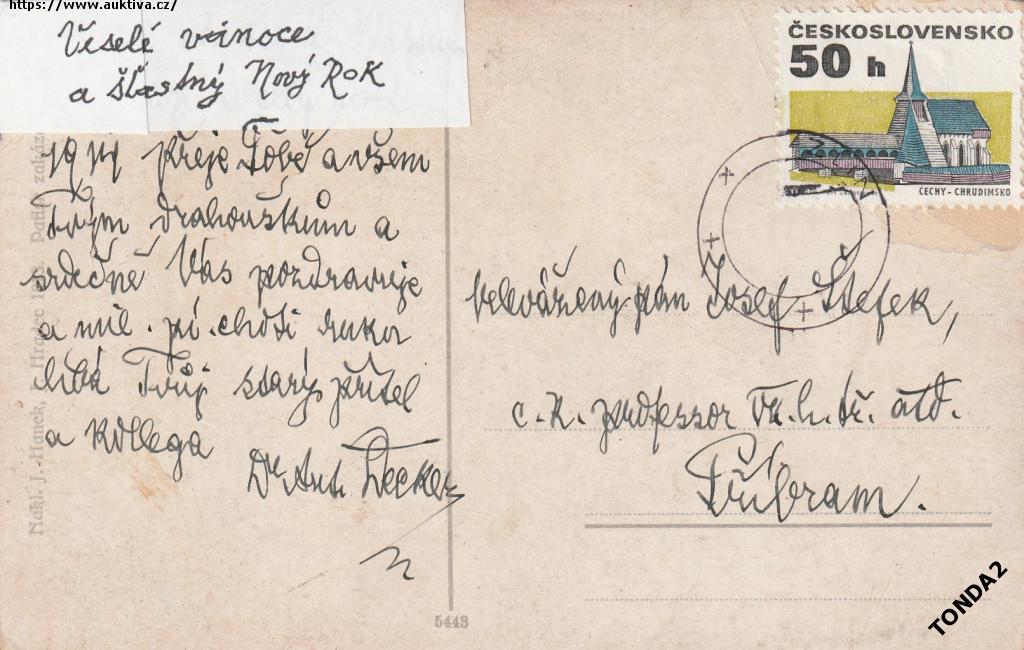 https://www.auktiva.cz/
Veselé vánoce
a šťastný Nový Rok
1911 přeje Tobě a všem
Tvým drahouškům a
srdečně Vás pozdravuje
a mil. pí. choti ruku
líbá Tvůj starý přítel
a kollega
Dr Ant. Decker
ČESKOSLOVENSKO
50 h
ČECHY - CHRUDIMSKO
velevážený pán Josef Štefek,
c. k. professor
Příbram.
Nakl. J. Hanek, J. Hradec
5443
TONDA2